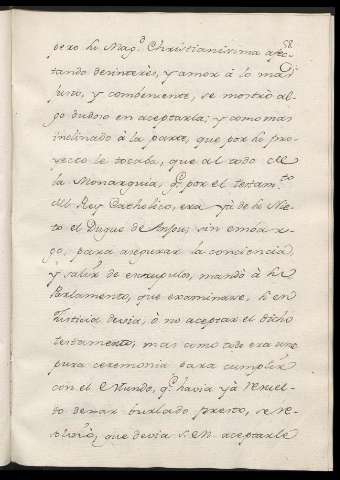 58
pero lo Mag.d Christianissima afec-
tando desinterès, y amor à lo mas
justo, y combeniente, se mostrò al-
go dudoso en aceptarla; y como mas
inclinado à la parte, que por lo pro-
yecto le tocaba, que al todo de
la Monarquia, q.e por el testam.to
del Rey Catholico, era yà de su Nie-
to el Duque de Anjou; sin embar-
go, para asegurar la conciencia,
y salir de escrupulos, mandò à su
Parlamento, que examinase, si en
Justicia devia, ò no aceptar el dicho
testamento; mas como todo era una
pura ceremonia para cumplir
con el Mundo, q.e havia yà resuel-
to dexar burlado presto, se re-
solviò, que devia S. M. aceptarle